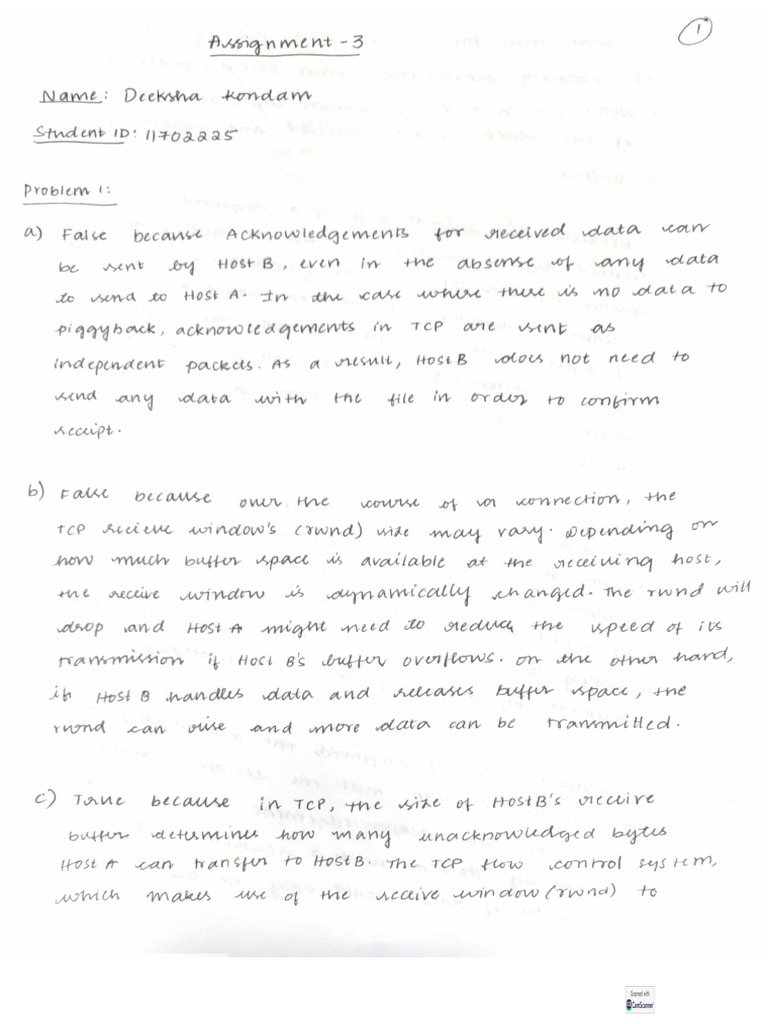 1
Assignment - 3
Name: Deeksha Kondam
Student ID: 11702225
Problem 1:
a) False because Acknowledgements for received data can
be sent by Host B, even in the absense of any data
to send to Host A. In the case where there is no data to
piggyback, acknowledgements in TCP are sent as
independent packets. As a result, Host B does not need to
send any data with the file in order to confirm
receipt.
b) False because over the course of a connection, the
TCP recieve window's (rwnd) size may vary. Depending on
how much buffer space is available at the receiving host,
the receive window is dynamically changed. The rwnd will
drop and Host A might need to reduce the speed of its
transmission if Host B's buffer overflows. On the other hand,
if Host B handles data and releases buffer space, the
rwnd can rise and more data can be transmitted.
c) True because in TCP, the size of Host B's receive
buffer determines how many unacknowledged bytes
Host A can transfer to Host B. The TCP flow control system,
which makes use of the receive window (rwnd) to
Scanned with
CamScanner